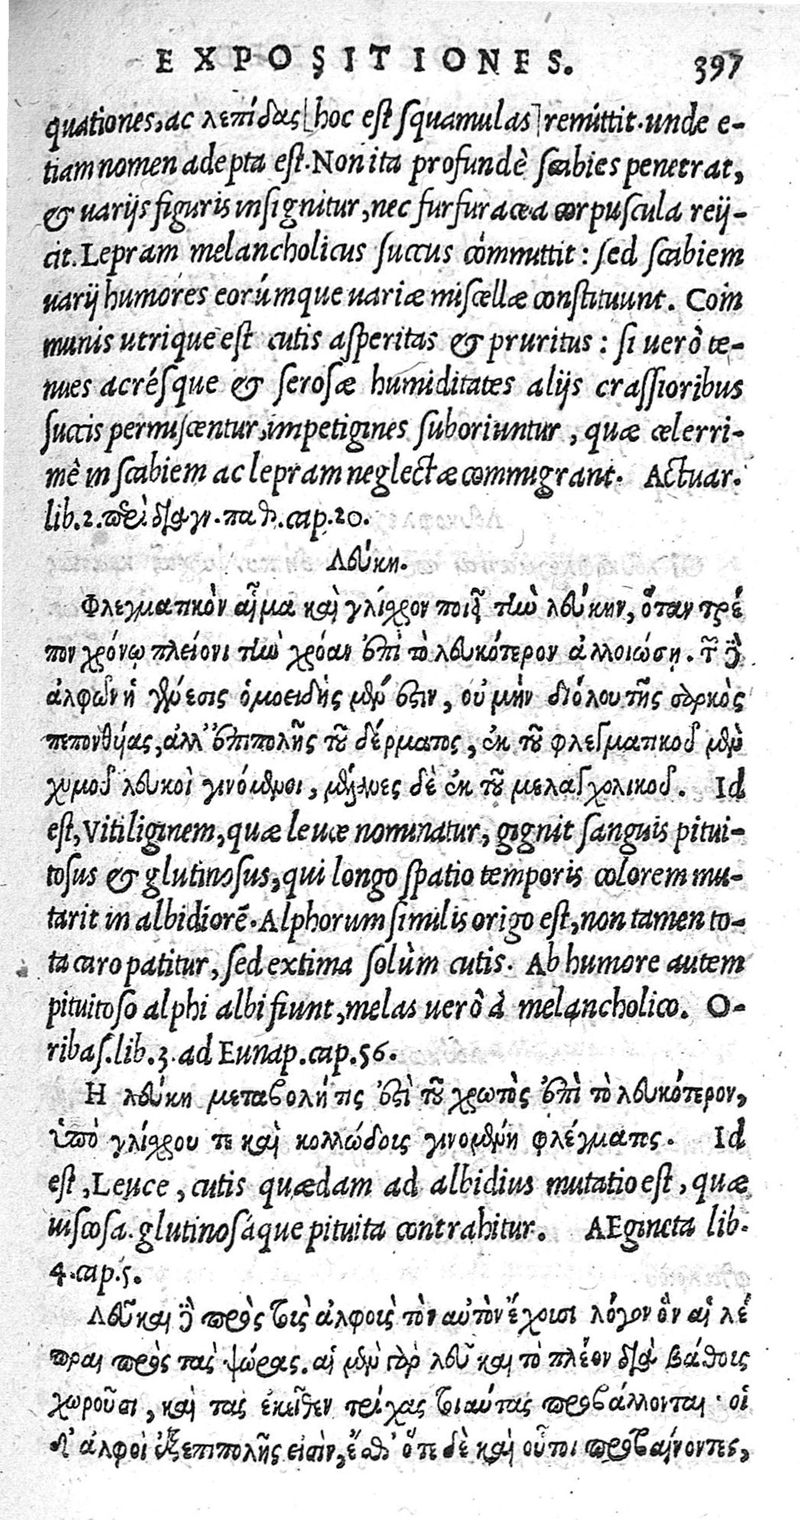 EXPOSITIONES. 397
quationes, ac λεπίδας [hoc est squamulas] remittit. unde e-
tiam nomen adepta est. Non ita profundè scabies penetrat,
& uarijs figuris insignitur, nec furfuracea corpuscula reij-
cit. Lepram melancholicus succus committit: sed scabiem
uarij humores eorúmque uariæ miscellæ constituunt. Com
munis utrique est cutis asperitas & pruritus: si uerò te-
nues acrésque & serosæ humiditates alijs crassioribus
succis permiscentur, impetigines suboriuntur, quæ celerri-
mè in scabiem ac lepram neglectæ commigrant. Actuar.
lib. 2. περὶ διαγν. παθ. cap. 20.
Λεύκη.
Φλεγματικὸν αἷμα καὶ γλίχρον ποιεῖ τὴν λεύκην, ὅταν τρέ
πον χρόνῳ πλείονι τὴν χρόαν ἐπὶ τὸ λευκότερον ἀλλοιώσῃ. τῶν δὲ
ἀλφῶν ἡ γένεσις ὁμοειδής μέν ἐστιν, οὐ μὴν διόλου τῆς σαρκὸς
πεπονθυίας, ἀλλ' ἐπιπολῆς τοῦ δέρματος, ἐκ τοῦ φλεγματικοῦ μὲν
χυμοῦ λευκοὶ γινόμενοι, μέλανες δὲ ἐκ τοῦ μελαγχολικοῦ. Id
est, Vitiliginem, quæ leuce nominatur, gignit sanguis pitui-
tosus & glutinosus, qui longo spatio temporis colorem mu-
tarit in albidiorē. Alphorum similis origo est, non tamen to-
ta caro patitur, sed extima solùm cutis. Ab humore autem
pituitoso alphi albi fiunt, melas uerò à melancholico. O-
ribas. lib. 3. ad Eunap. cap. 56.
Η λεύκη μεταβολή τις ἐστὶ τοῦ χρωτὸς ἐπὶ τὸ λευκότερον,
ὑπὸ γλίχρου τε καὶ κολλώδοις γινομένη φλέγματος. Id
est, Leuce, cutis quædam ad albidius mutatio est, quæ
uiscosa. glutinosáque pituita contrahitur. AEgineta lib.
4. cap. 5.
Λεῦκαι δὲ πρὸς τοὶς ἀλφοὶς τὸν αὐτὸν ἔχουσι λόγον ὃν αἱ λέ
πραι πρὸς τὰς ψώρας. αἱ μὲν γὰρ λεῦκαι τὸ πλέον διὰ βάθοις
χωροῦσι, καὶ τὰς ἐκεῖθεν τρίχας τοιαύτας προβάλλονται· οἱ
δ' ἀλφοὶ ἐξεπιπολῆς εἰσὶν, ἔσθ' ὅτε δὲ καὶ οὗτοι προβαίνοντες,